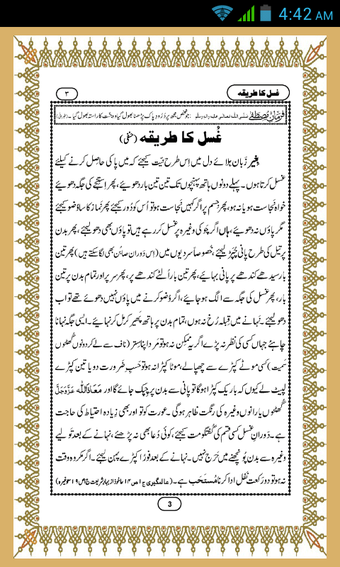 4:42 AM
غسل کا طریقہ
۳
فرمانِ مصطفےٰ صلی اللہ تعالیٰ علیہ واٰلہ وسلم جو شخص مجھ پر دُرُود پاک پڑھنا بھول گیا وہ جنت کا راستہ بھول گیا۔
غُسل کا طریقہ (حنفی)
بغیر زَبان ہلائے دل میں اِس طرح نیّت کیجئے کہ میں پاکی حاصل کرنے کیلئے
غسل کرتا ہوں۔ پہلے دونوں ہاتھ پہنچوں تک تین تین بار دھوئیے، پھر اِستنجے کی جگہ دھوئیے
خواہ نَجاست ہو یا نہ ہو، پھر جسم پر اگر کہیں نَجاست ہو تو اُس کو دُور کیجئے پھر نَماز کا سا وُضو کیجئے
مگر پاؤں نہ دھوئیے، ہاں اگر چوکی وغیرہ پر غسل کر رہے ہیں تو پاؤں بھی دھو لیجئے، پھر بدن
پر تیل کی طرح پانی چُپَڑ لیجئے، خُصوصاً سردیوں میں (اس دَوران صابُن بھی لگا سکتے ہیں) پھر تین
بار سیدھے کندھے پر پانی بہائیے، پھر تین بار اُلٹے کندھے پر، پھر سر پر اور تمام بدن پر تین
بار، پھر غسل کی جگہ سے الگ ہو جائیے، اگر وُضو کرنے میں پاؤں نہیں دھوئے تھے تو اب
دھو لیجئے۔ نہانے میں قبلہ رُخ نہ ہوں، تمام بدن پر ہاتھ پھیر کر مَل کر نہائیے۔ ایسی جگہ نہانا
چاہئے جہاں کسی کی نظر نہ پڑے اگر یہ ممکِن نہ ہو تو مَرد اپنا ستر (ناف سے لے کر دونوں گھٹنوں
سمیت) کسی موٹے کپڑے سے چھپا لے، موٹا کپڑا نہ ہو تو حسبِ ضَرورت دو یا تین کپڑے
لپیٹ لے کیوں کہ باریک کپڑا ہو گا تو پانی سے بدن پر چپک جائے گا اور مَعاذَاللہ عَزَّوَجَلَّ
گھٹنوں یا رانوں وغیرہ کی رنگت ظاہر ہو گی۔ عورت کو تو اور بھی زِیادہ اِحتیاط کی حاجت
ہے۔ دَورانِ غسل کسی قسم کی گفتگو مت کیجئے، کوئی دُعا بھی نہ پڑھئے، نہانے کے بعد تولیے
وغیرہ سے بدن پُونچھنے میں حَرَج نہیں۔ نہانے کے بعد فوراً کپڑے پہن لیجئے۔ اگر مکروہ وقت
نہ ہو تو دو رَکعت نَفل ادا کرنا مُستَحَب ہے۔ (عالمگیری ج۱ ص۱۴ ماخوذ از بہارِ شریعت ج۱ ص۳۱۹ وغیرہ)
3